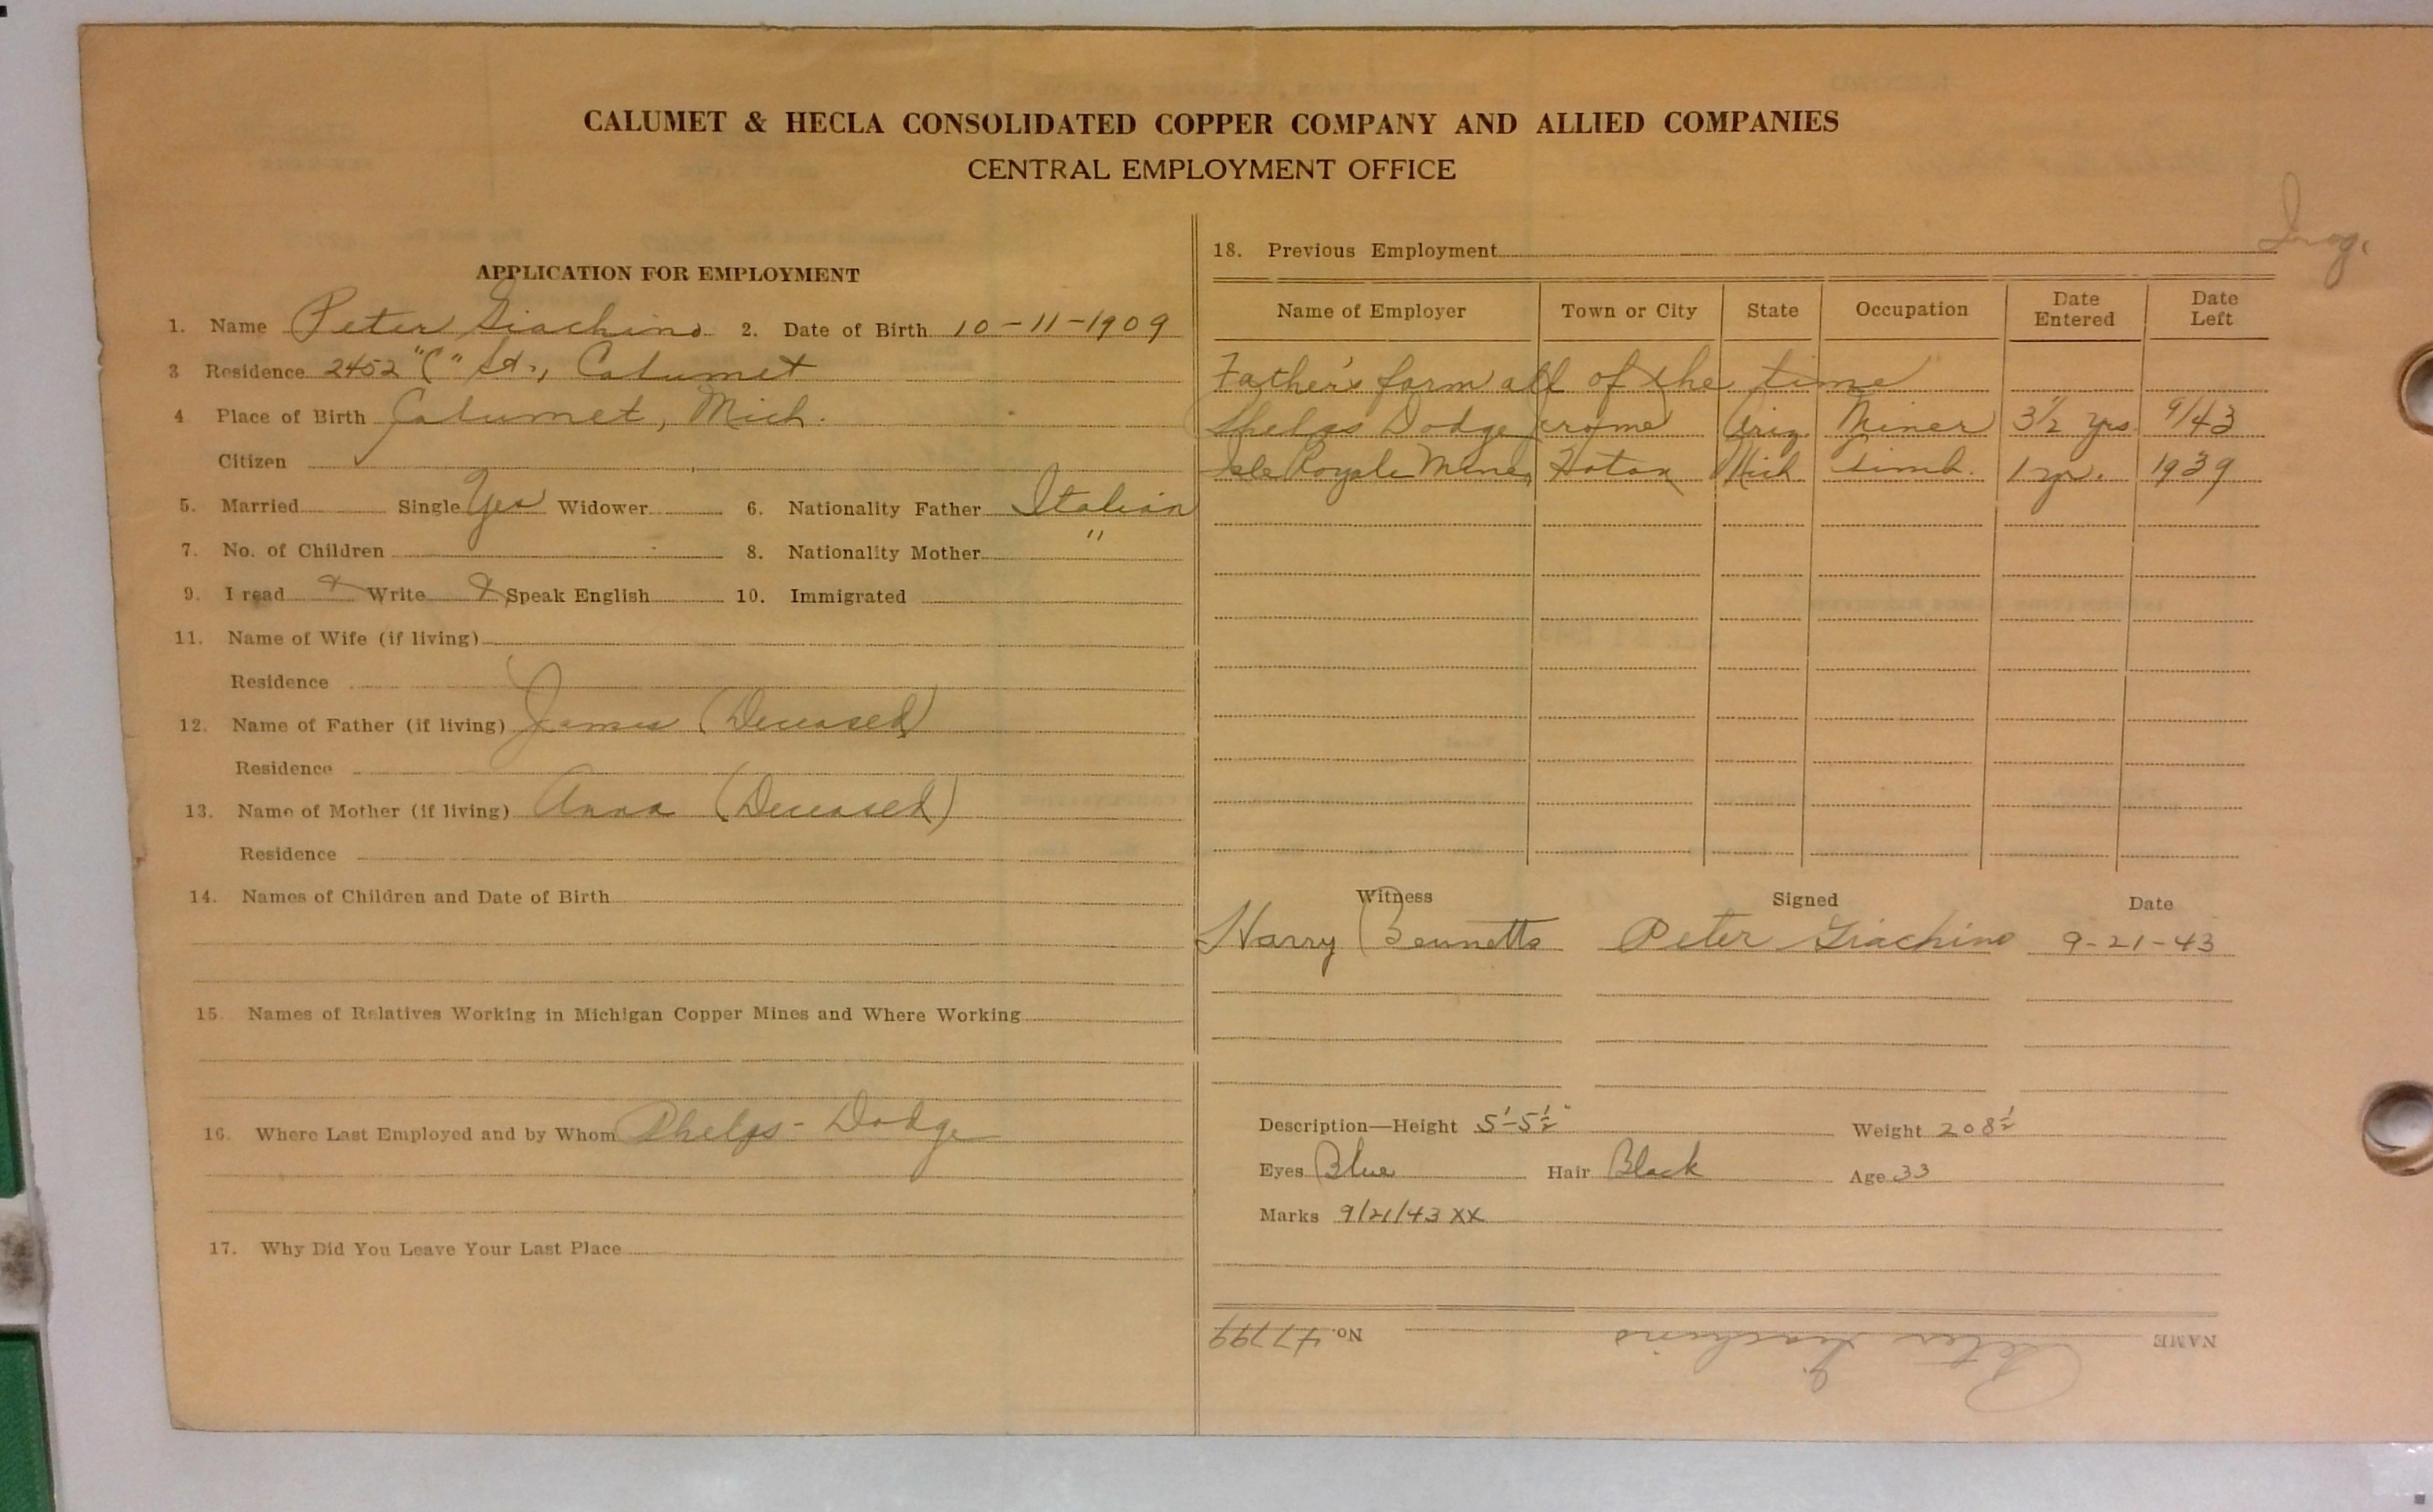 CALUMET & HECLA CONSOLIDATED COPPER COMPANY AND ALLIED COMPANIES
CENTRAL EMPLOYMENT OFFICE
APPLICATION FOR EMPLOYMENT
1. Name Peter Giachino 2. Date of Birth 10-11-1909
3 Residence 2452 "C" St., Calumet
4 Place of Birth Calumet, Mich.
Citizen
5. Married Single Yes Widower 6. Nationality Father Italian
7. No. of Children 8. Nationality Mother "
9. I read Write Speak English 10. Immigrated
11. Name of Wife (if living)
Residence
12. Name of Father (if living) James (Deceased)
Residence
13. Name of Mother (if living) Anna (Deceased)
Residence
14. Names of Children and Date of Birth
15. Names of Relatives Working in Michigan Copper Mines and Where Working
16. Where Last Employed and by Whom Phelps-Dodge
17. Why Did You Leave Your Last Place
18. Previous Employment
Name of Employer Town or City State Occupation Date Entered Date Left
Father's farm all of the time
Phelps Dodge Jerome Ariz. Miner 3½ yrs. 9/43
Isle Royale Mine, Hoton Mich timb. 1 yr. 1939
Witness Signed Date
Harry Bennetts Peter Giachino 9-21-43
Description—Height 5'-5½" Weight 208½
Eyes Blue Hair Black Age 33
Marks 9/21/43 XX
NAME Peter Giachino No. 47799